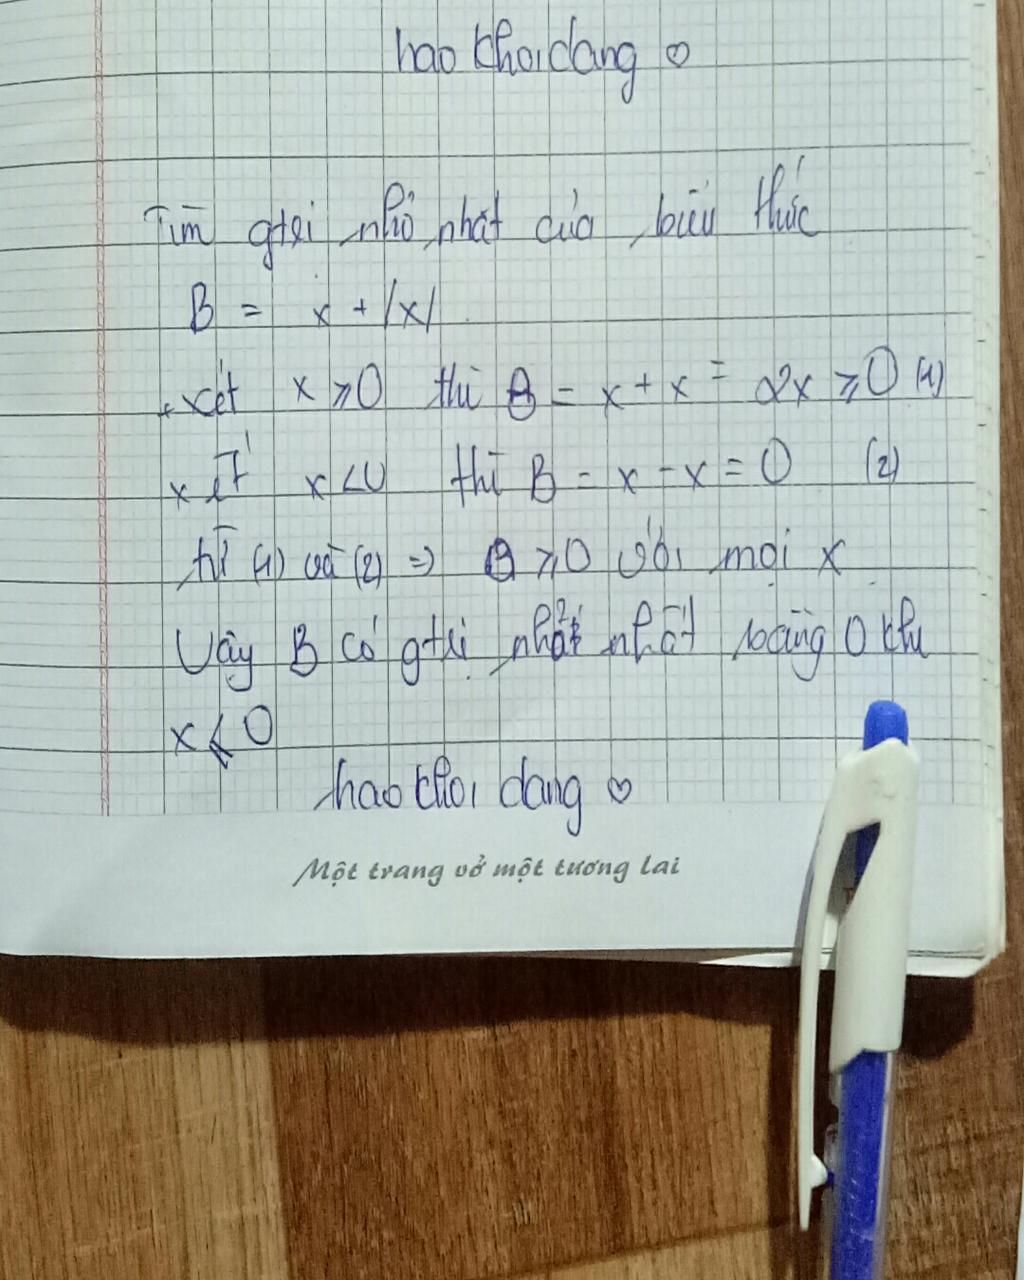 hao khoi dang ♡
Tìm gtrị nhỏ nhất của biểu thức
B = x + |x|
+ xét x ⩾ 0 thì B = x + x = 2x ⩾ 0 (1)
xét x < 0 thì B = x - x = 0 (2)
từ (1) và (2) => B ⩾ 0 với mọi x
Vậy B có gtrị nhất nhất bằng 0 khi
x ⩽ 0
hao khoi dang ♡
Một trang vở một tương lai